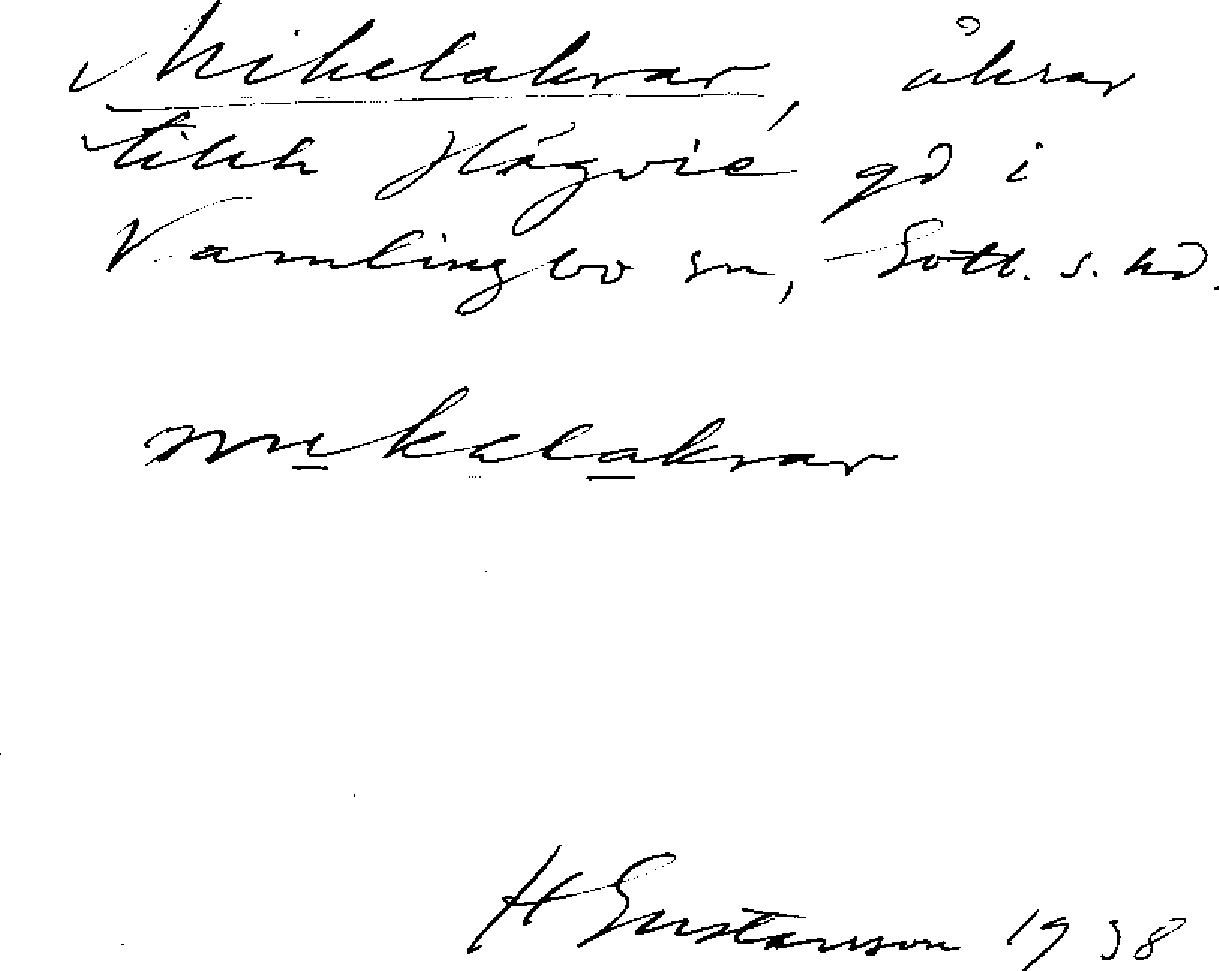 Mikelakrar, åkrar
till Hägvië gd i
Vamlingbo sn, Gotl. s. hd.
mikelakrar
H Gustavson 1938